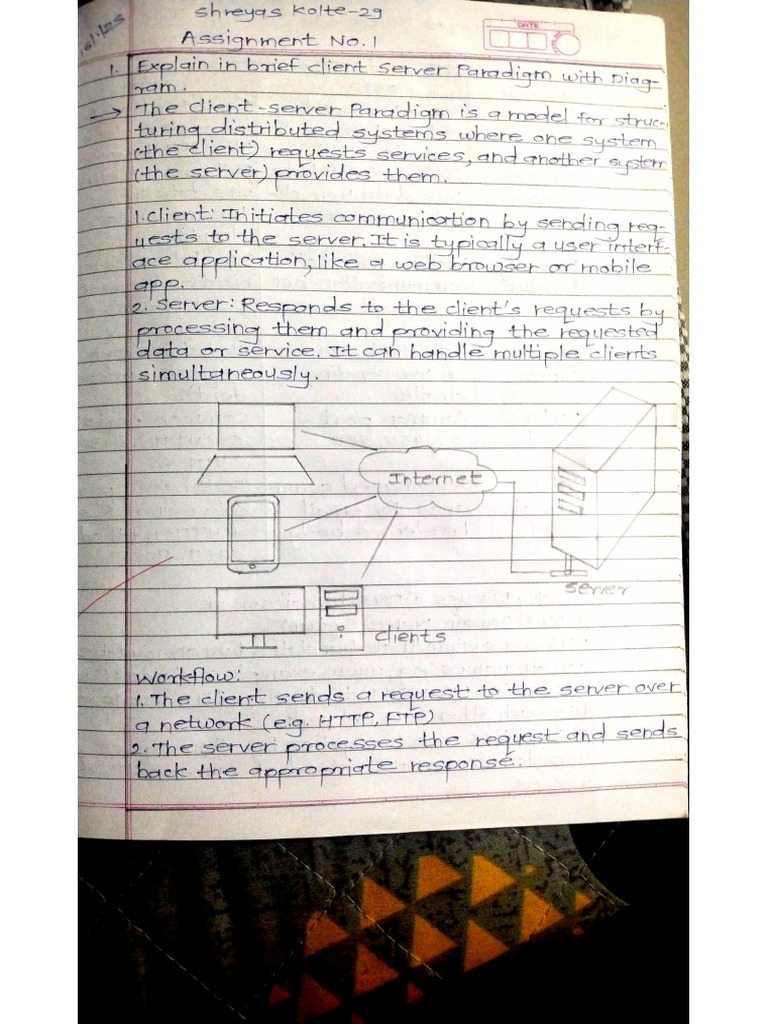 Shreyas Kolte-29
Assignment No.1
DATE
1. Explain in brief client Server Paradigm with Diag-
ram.
→ The client-server Paradigm is a model for struc-
turing distributed systems where one system
(the client) requests services, and another system
(the server) provides them.
1. client: Initiates communication by sending req-
uests to the server. It is typically a user interf-
ace application, like a web browser or mobile
app.
2. Server: Responds to the client's requests by
processing them and providing the requested
data or service. It can handle multiple clients
simultaneously.
Internet
server
clients
Workflow:
1. The client sends a request to the server over
a network (e.g. HTTP, FTP)
2. The server processes the request and sends
back the appropriate response.